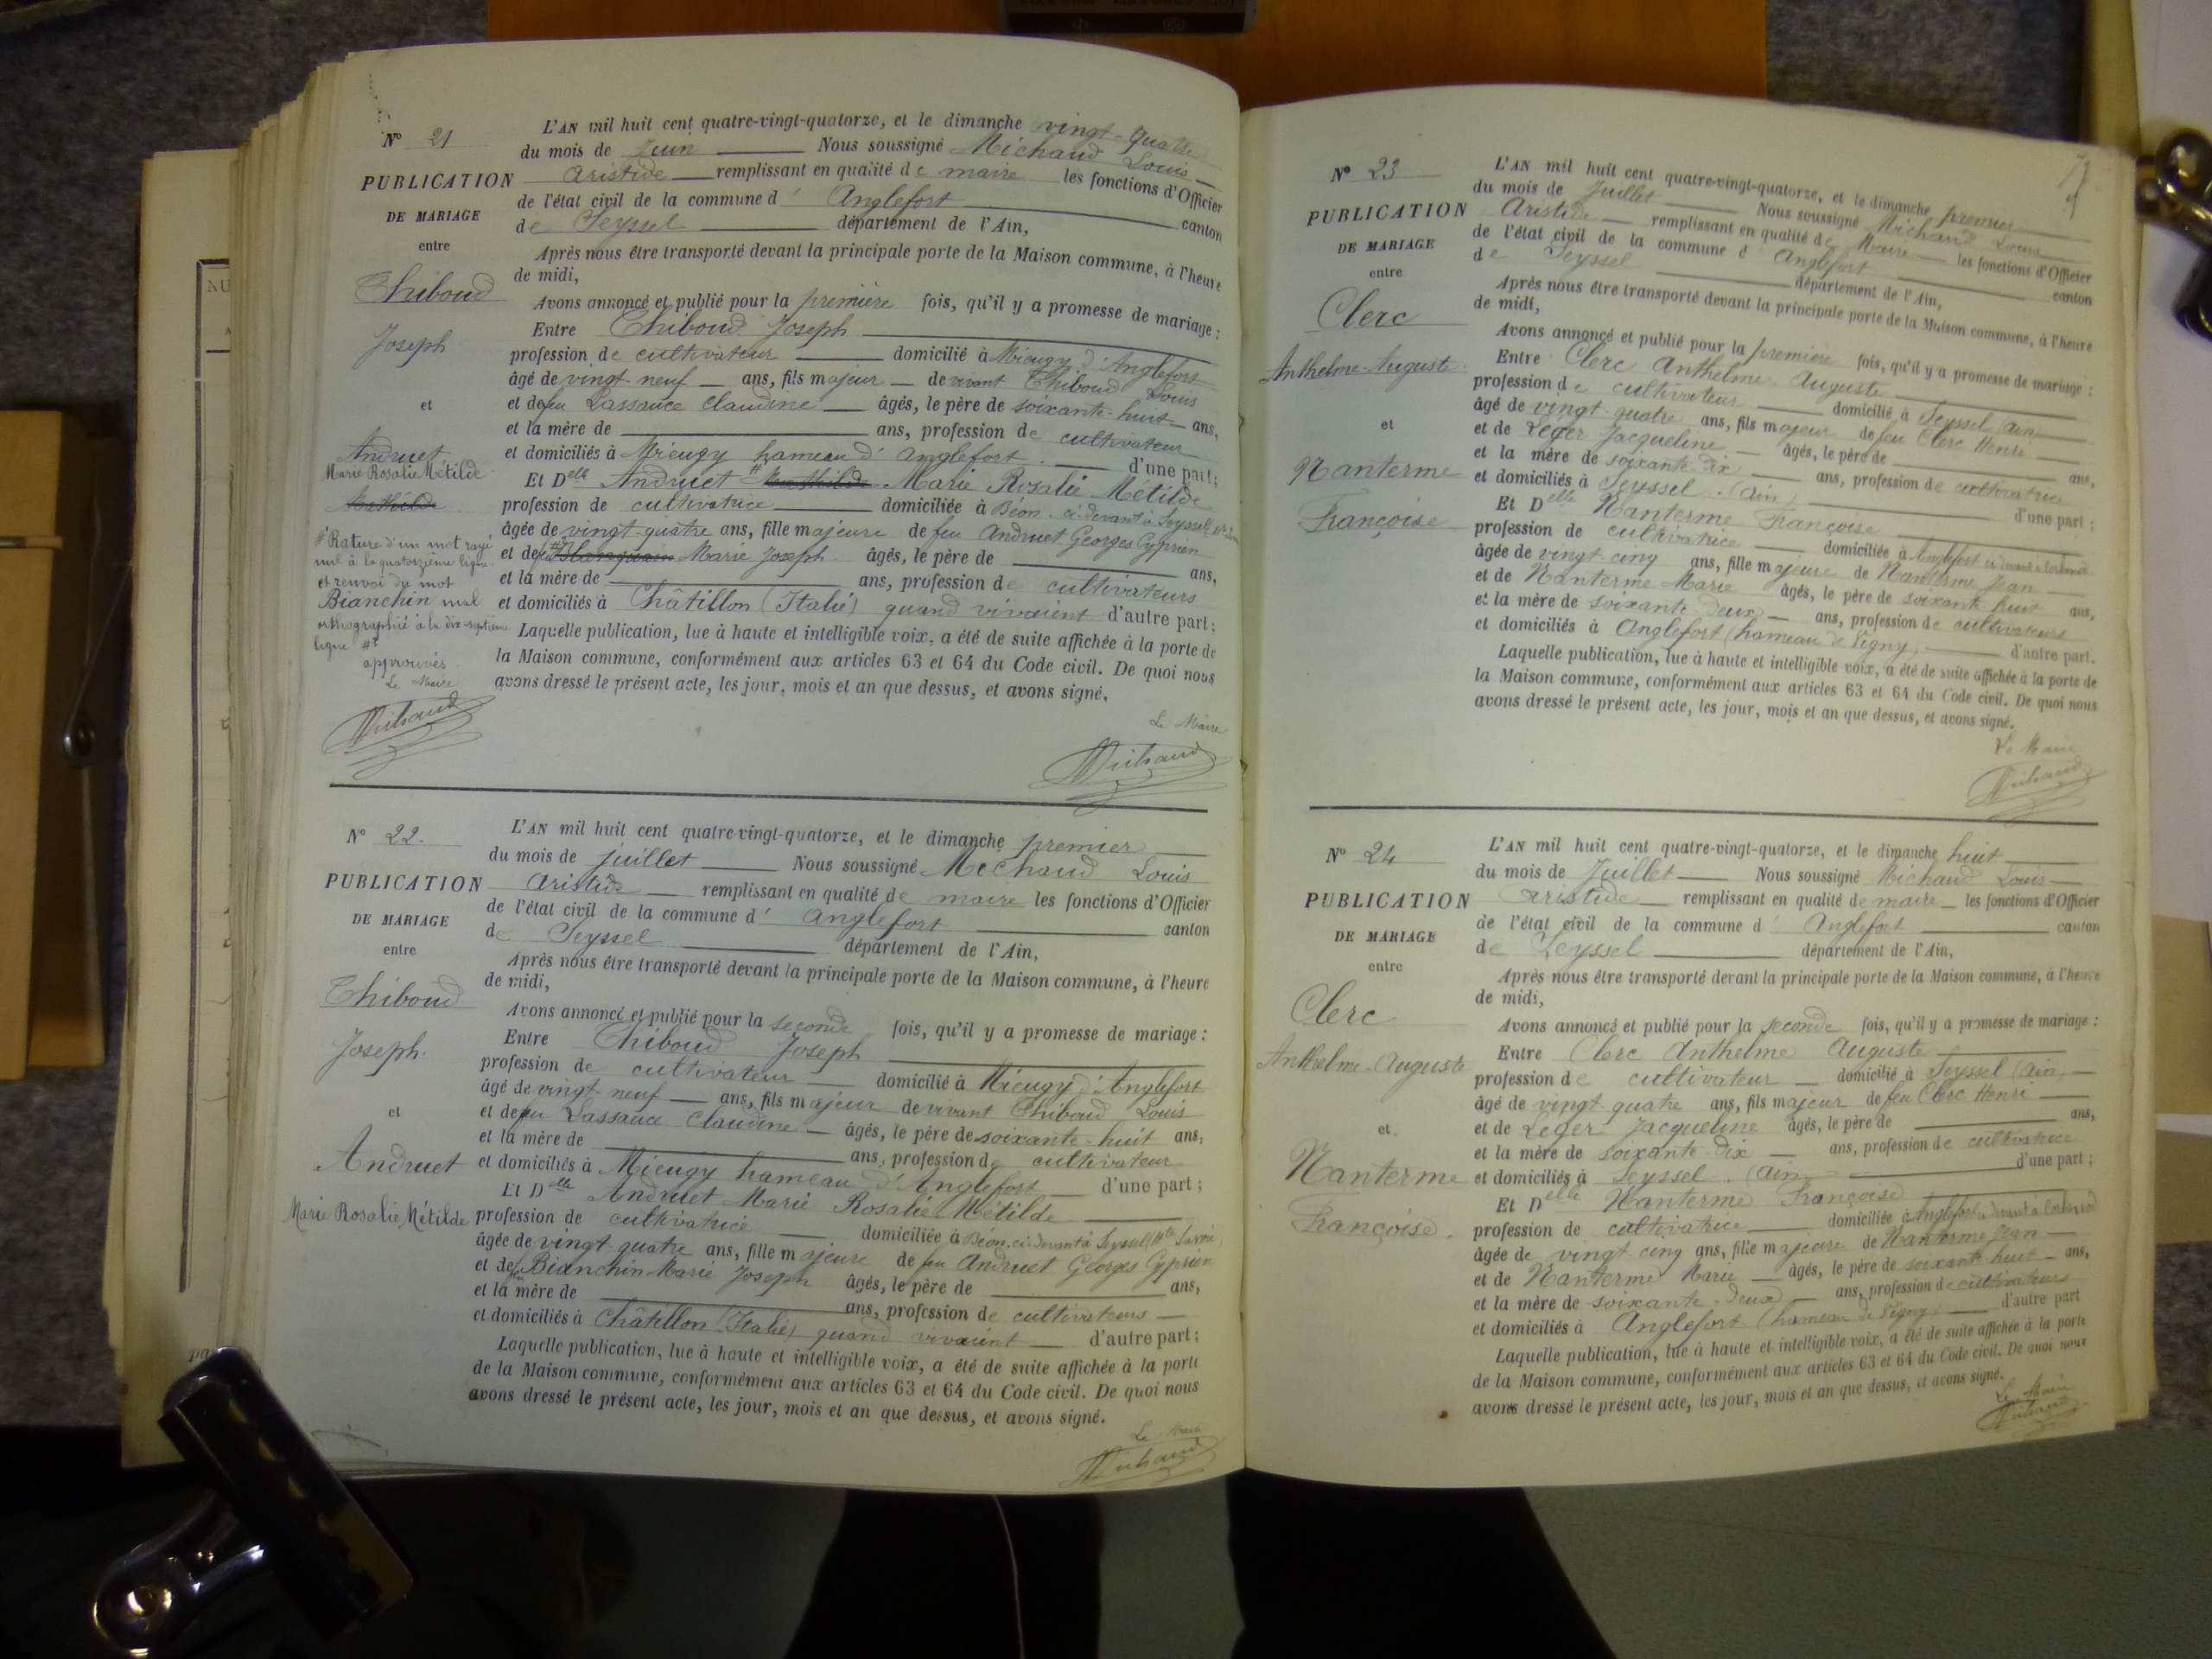 N° 21
PUBLICATION
DE MARIAGE
entre
Thiboud
Joseph
et
Andruet
Marie Rosalie Métilde
# Rature d'un mot rayé
nul à la quatorzième ligne
et renvoi du mot
Bianchin mal
orthographié à la dix-septième
ligne #
approuvés
Le Maire
Michaud
L'AN mil huit cent quatre-vingt-quatorze, et le dimanche vingt-quatre
du mois de Juin Nous soussigné Michaud Louis
Aristide remplissant en qualité de maire les fonctions d'Officier
de l'état civil de la commune d' Anglefort canton
de Seyssel département de l'Ain,
Après nous être transporté devant la principale porte de la Maison commune, à l'heure
de midi,
Avons annoncé et publié pour la première fois, qu'il y a promesse de mariage :
Entre Thiboud Joseph
profession de cultivateur domicilié à Mieugy d'Anglefort
âgé de vingt-neuf ans, fils majeur de vivant Thiboud Louis
et de feu Lassauce Claudine âgés, le père de soixante-huit ans,
et la mère de ans, profession de cultivateur
et domiciliés à Mieugy hameau d'Anglefort d'une part ;
Et Delle Andruet # Marie Rosalie Métilde
profession de cultivatrice domiciliée à Béon ci-devant à Seyssel
âgée de vingt-quatre ans, fille majeure de feu Andruet Georges Cyprien
et de feu # Marie Joseph âgés, le père de ans,
et la mère de ans, profession de cultivateurs
et domiciliés à Châtillon (Italie) quand vivaient d'autre part ;
Laquelle publication, lue à haute et intelligible voix, a été de suite affichée à la porte de
la Maison commune, conformément aux articles 63 et 64 du Code civil. De quoi nous
avons dressé le présent acte, les jour, mois et an que dessus, et avons signé.
Le Maire
Michaud
N° 22.
PUBLICATION
DE MARIAGE
entre
Thiboud
Joseph.
et
Andruet
Marie Rosalie Métilde
L'AN mil huit cent quatre-vingt-quatorze, et le dimanche premier
du mois de juillet Nous soussigné Michaud Louis
Aristide remplissant en qualité de maire les fonctions d'Officier
de l'état civil de la commune d' Anglefort canton
de Seyssel département de l'Ain,
Après nous être transporté devant la principale porte de la Maison commune, à l'heure
de midi,
Avons annoncé et publié pour la seconde fois, qu'il y a promesse de mariage :
Entre Thiboud Joseph
profession de cultivateur domicilié à Mieugy d'Anglefort
âgé de vingt-neuf ans, fils majeur de vivant Thiboud Louis
et de feu Lassauce Claudine âgés, le père de soixante-huit ans,
et la mère de ans, profession de cultivateur
et domiciliés à Mieugy hameau d'Anglefort d'une part ;
Et Delle Andruet Marie Rosalie Métilde
profession de cultivatrice domiciliée à Béon, ci-devant à Seyssel (Hte Savoie)
âgée de vingt-quatre ans, fille majeure de feu Andruet Georges Cyprien
et de feu Bianchin Marie Joseph âgés, le père de ans,
et la mère de ans, profession de cultivateurs
et domiciliés à Châtillon (Italie) quand vivaient d'autre part ;
Laquelle publication, lue à haute et intelligible voix, a été de suite affichée à la porte
de la Maison commune, conformément aux articles 63 et 64 du Code civil. De quoi nous
avons dressé le présent acte, les jour, mois et an que dessus, et avons signé.
Le Maire
Michaud
N° 23
PUBLICATION
DE MARIAGE
entre
Clerc
Anthelme-Auguste
et
Nanterme
Françoise
L'AN mil huit cent quatre-vingt-quatorze, et le dimanche premier
du mois de Juillet Nous soussigné Michaud Louis
Aristide remplissant en qualité de Maire les fonctions d'Officier
de l'état civil de la commune d' Anglefort canton
de Seyssel département de l'Ain,
Après nous être transporté devant la principale porte de la Maison commune, à l'heure
de midi,
Avons annoncé et publié pour la première fois, qu'il y a promesse de mariage :
Entre Clerc Anthelme Auguste
profession de cultivateur domicilié à Seyssel (Ain)
âgé de vingt-quatre ans, fils majeur de feu Clerc Henri
et de Léger Jacqueline âgés, le père de ans,
et la mère de soixante-dix ans, profession de cultivatrice
et domiciliés à Seyssel. (Ain) d'une part ;
Et Delle Nanterme Françoise
profession de cultivatrice domiciliée à Anglefort ci-devant à
âgée de vingt-cinq ans, fille majeure de Nanterme Jean
et de Nanterme Marie âgés, le père de soixante huit ans,
et la mère de soixante-deux ans, profession de cultivateurs
et domiciliés à Anglefort (hameau de Vigny) d'autre part.
Laquelle publication, lue à haute et intelligible voix, a été de suite affichée à la porte de
la Maison commune, conformément aux articles 63 et 64 du Code civil. De quoi nous
avons dressé le présent acte, les jour, mois et an que dessus, et avons signé.
Le Maire
Michaud
N° 24
PUBLICATION
DE MARIAGE
entre
Clerc
Anthelme-Auguste
et
Nanterme
Françoise.
L'AN mil huit cent quatre-vingt-quatorze, et le dimanche huit
du mois de Juillet Nous soussigné Michaud Louis
Aristide remplissant en qualité de maire les fonctions d'Officier
de l'état civil de la commune d' Anglefort canton
de Seyssel département de l'Ain,
Après nous être transporté devant la principale porte de la Maison commune, à l'heure
de midi,
Avons annoncé et publié pour la seconde fois, qu'il y a promesse de mariage :
Entre Clerc Anthelme Auguste
profession de cultivateur domicilié à Seyssel (Ain)
âgé de vingt-quatre ans, fils majeur de feu Clerc Henri
et de Léger Jacqueline âgés, le père de ans,
et la mère de soixante-dix ans, profession de cultivatrice
et domiciliés à Seyssel. (Ain) d'une part ;
Et Delle Nanterme Françoise
profession de cultivatrice domiciliée à Anglefort ci-devant à
âgée de vingt cinq ans, fille majeure de Nanterme Jean
et de Nanterme Marie âgés, le père de soixante huit ans,
et la mère de soixante-deux ans, profession de cultivateurs
et domiciliés à Anglefort (hameau de Vigny) d'autre part
Laquelle publication, lue à haute et intelligible voix, a été de suite affichée à la porte
de la Maison commune, conformément aux articles 63 et 64 du Code civil. De quoi nous
avons dressé le présent acte, les jour, mois et an que dessus, et avons signé.
Le Maire
Michaud